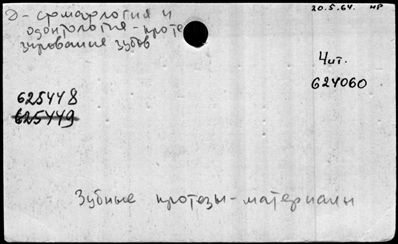 Э - стоматология и
одонтология - проте-
зирование зубов
20.5.64. нр
Чит.
624060
625448
625449
Зубные протезы - материалы